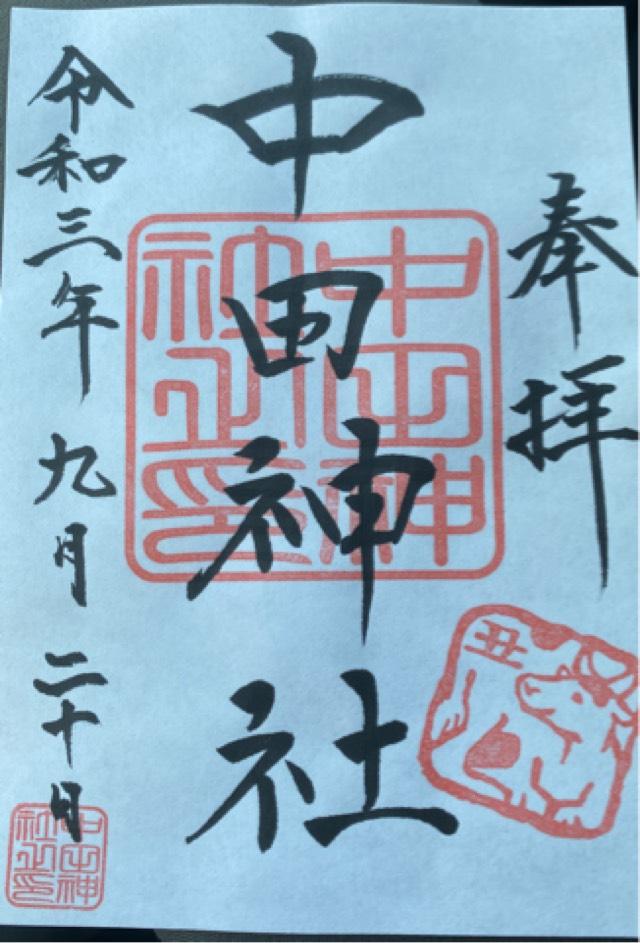 奉拝
中田神社
中田神社之印
丑
令和三年 九月 二十日
中田神社之印